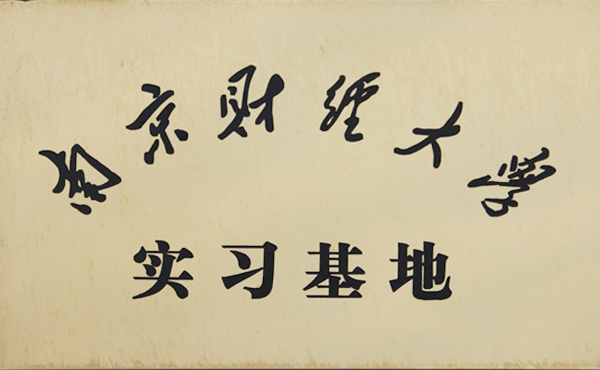 南京财经大学
实习基地